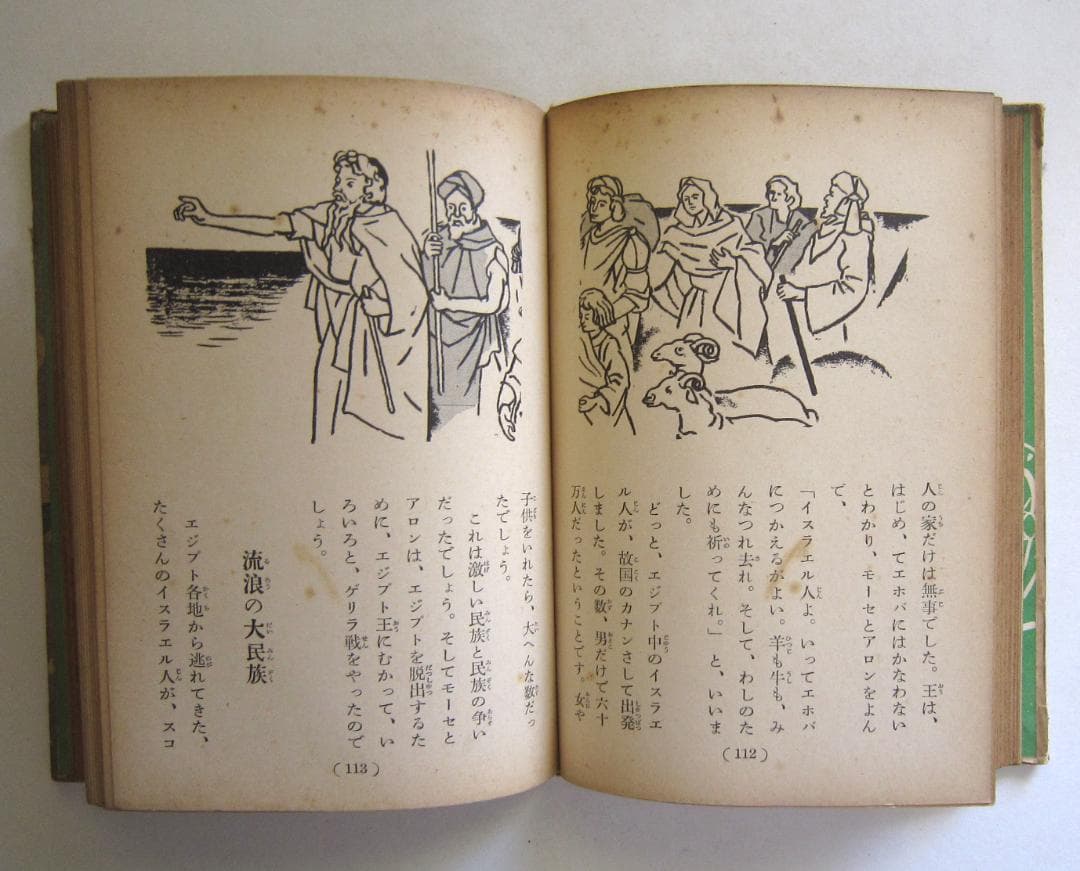 人の家だけは無事でした。王は、
はじめ、てエホバにはかなわない
とわかり、モーセとアロンをよん
で、
「イスラエル人よ。いってエホバ
につかえるがよい。羊も牛も、み
んなつれ去れ。そして、わしのた
めにも祈ってくれ。」と、いいま
した。
どっと、エジプト中のイスラエ
ル人が、故国のカナンさして出発
しました。その数、男だけで六十
万人だったということです。女や
(112)
子供をいれたら、大へんな数だっ
たでしょう。
これは激しい民族と民族の争い
だったでしょう。そしてモーセと
アロンは、エジプトを脱出するた
めに、エジプト王にむかって、い
ろいろと、ゲリラ戦をやったので
しょう。
流浪の大民族
エジプト各地から逃れてきた、
たくさんのイスラエル人が、スコ
(113)